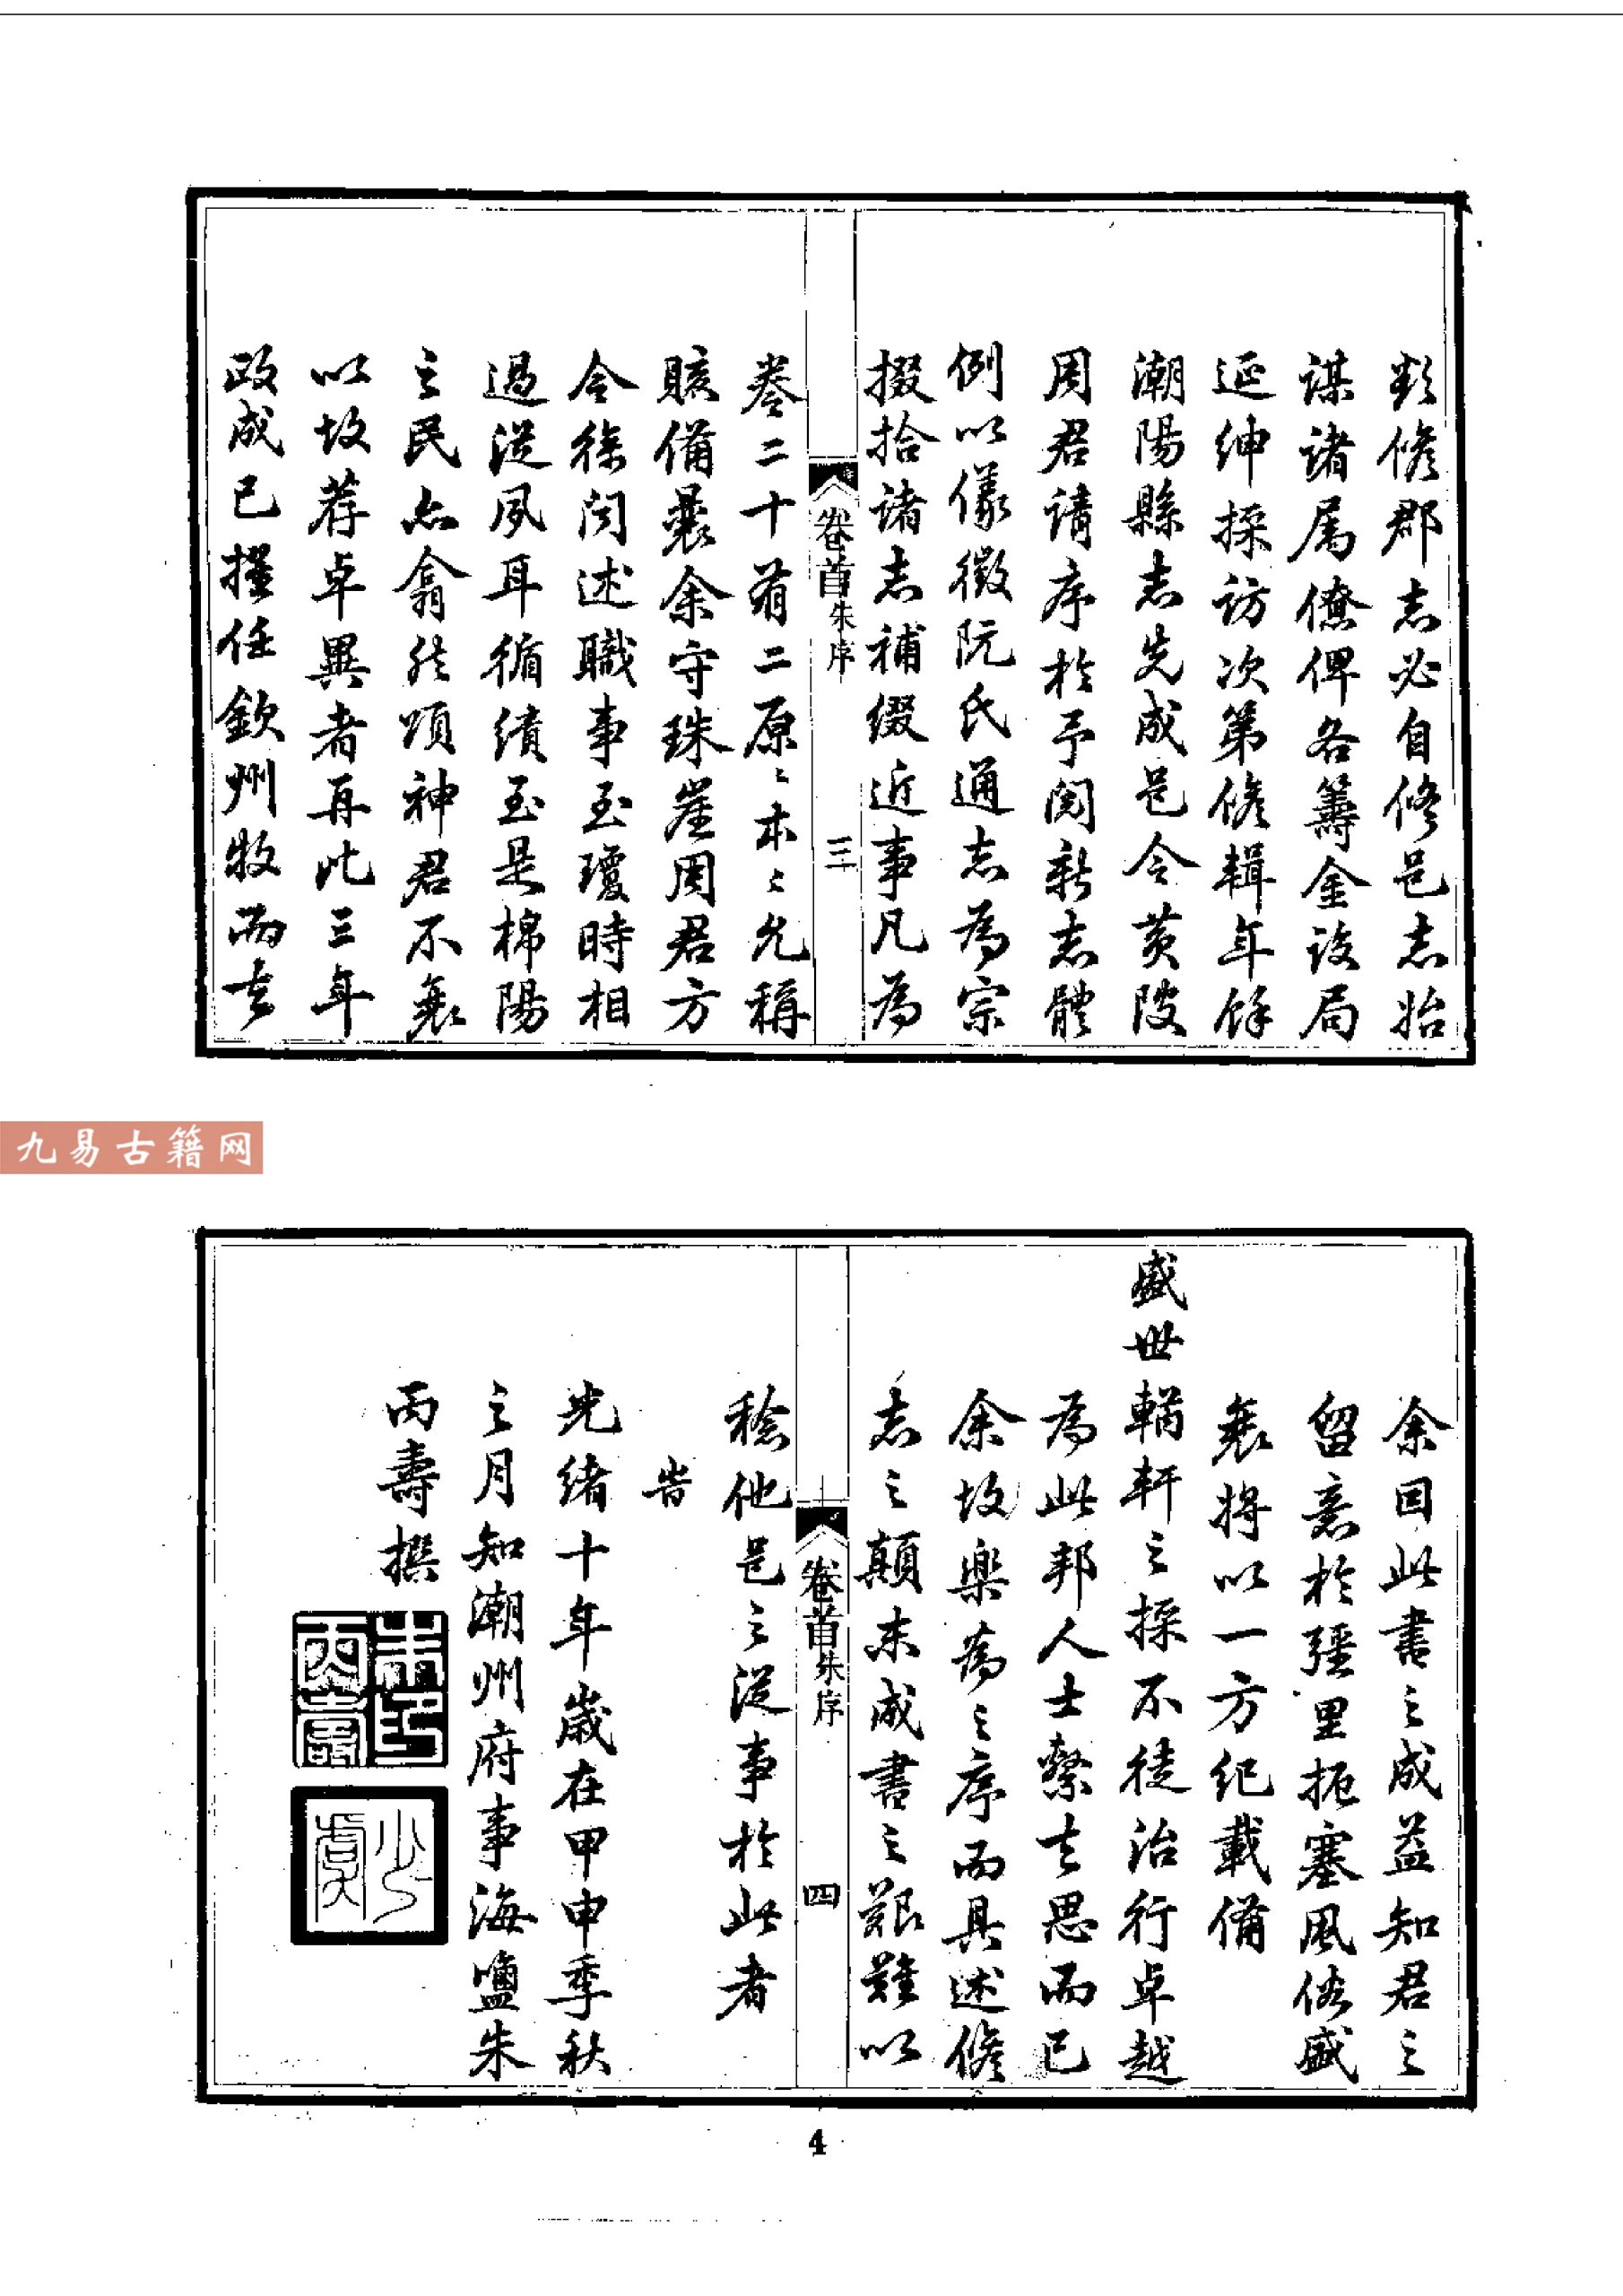 欵修郡志必自修邑志始
謀諸属僚俾各籌金設局
延紳採访次第修輯年餘
潮陽縣志先成邑令黄陂
周君请序於予閱新志體
例以儀徵阮氏通志為宗
掇拾诸志補缀近事凡為
卷首朱序 三
卷二十有二原〻本〻允稱
賅備曩余守珠崖周君方
令徐闻述職事至瓊時相
過從夙耳循績至是棉陽
之民亦翕然頌神君不衰
以故荐卓異者再比三年
政成已擢任欽州牧而去
九易古籍网
余因此書之成益知君之
留意於疆里扼塞風俗盛
衰将以一方纪載備
盛世輶軒之採不徒治行卓越
為此邦人士繫去思而已
余故樂為之序而具述修
志之顛末成書之艱難以
卷首朱序 四
稔他邑之從事於此者
峕
光绪十年歲在甲申季秋
之月知潮州府事海鹽朱
丙壽撰
朱印丙壽
少虞
4